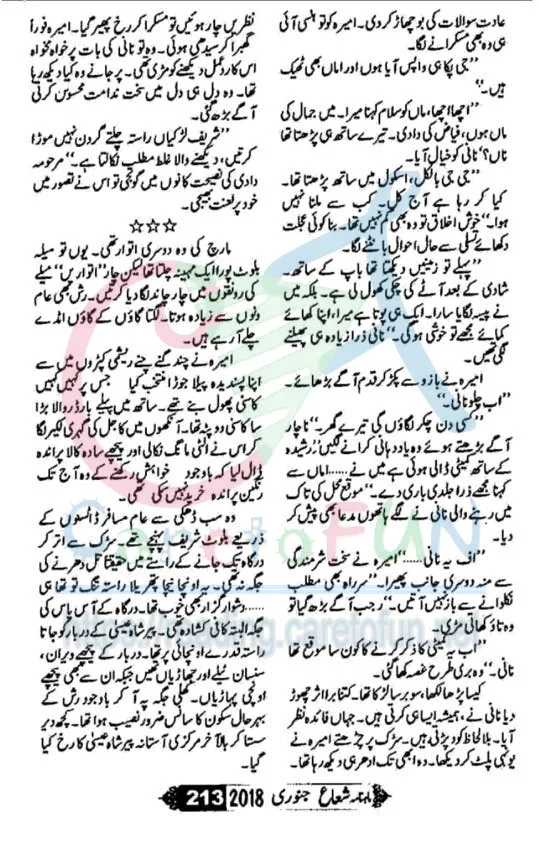 عادت سوالات کی بوچھاڑ کر دی۔ امیرہ کو تو ہنسی آئی
ہی وہ بھی مسکرانے لگا۔
”جی پکا ہی واپس آیا ہوں اور اماں بھی ٹھیک
ہیں۔“
”اچھا اچھا، ماں کو سلام کہنا میرا۔ میں جمال کی
ماں ہوں، فیاض کی دادی۔ تیرے ساتھ ہی پڑھتا تھا
ناں؟“ نانی کو خیال آیا۔
”جی جی بالکل، اسکول میں ساتھ پڑھتا تھا۔
کیا کر رہا ہے آج کل۔ کب سے ملنا نہیں
ہوا۔“ خوش اخلاق تو وہ بھی کم نہیں تھا۔ بنا کوئی عجلت
دکھائے تسلی سے حال احوال بانٹنے لگا۔
”پہلے تو زمینیں دیکھتا تھا باپ کے ساتھ۔
شادی کے بعد آٹے کی چکی کھول لی ہے۔ بلکہ میں
نے پیسہ لگایا سارا۔ ایک ہی پوتا ہے میرا، اپنا کھائے
کمائے مجھے تو خوشی ہوگی۔“ نانی ذرا زیادہ ہی پھیلنے
لگی تھیں۔
امیرہ نے بازو سے پکڑ کر قدم آگے بڑھائے۔
”اب چلو نانی۔“
”کسی دن چکر لگاؤں گی تیرے گھر۔“ ناچار
آگے بڑھتے ہوئے وہ یاد دہانی کرانے لگیں ”رشیدہ
کے ساتھ کمیٹی ڈالی ہوئی ہے میں نے ..... اماں سے
کہنا مجھے ذرا جلدی باری دے۔“ موقع محل کی تاک
میں رہنے والی نانی نے لگے ہاتھوں مدعا بھی پیش کر
دیا۔
”اف یہ نانی .....“ امیرہ نے سخت شرمندگی
سے منہ دوسری جانب پھیرا۔ ”سرراہ بھی مطلب
نکلوانے سے باز نہیں آتیں۔“ رجب آگے بڑھ گیا تو
وہ تاؤ کھاتی مڑی۔
”اب یہ کمیٹی کا ذکر کرنے کا کون سا موقع تھا
نانی۔“ وہ بری طرح غصہ کھا گئی۔
کیسا پڑھا لکھا، سوبر سا لڑکا تھا۔ کتنا برا اثر چھوڑ
دیا نانی نے، ہمیشہ ایسا ہی کرتی ہیں۔ جہاں فائدہ نظر
آیا۔ بلا لحاظ کود پڑتی ہیں۔ سڑک پر چڑھتے امیرہ نے
یونہی پلٹ کر دیکھا۔ وہ ابھی تک ادھر ہی دیکھ رہا تھا۔
نظریں چار ہوئیں تو مسکرا کر رخ پھیر گیا۔ امیرہ فوراً
گھبرا کر سیدھی ہوئی۔ وہ تو نانی کی بات پر خواہ مخواہ
اس کا ردعمل دیکھنے کو مڑی تھی۔ پر جانے وہ کیا دیکھ رہا
تھا۔ وہ دل ہی دل میں سخت ندامت محسوس کرتی
آگے بڑھ گئی۔
”شریف لڑکیاں راستہ چلتے گردن نہیں موڑا
کرتیں، دیکھنے والا غلط مطلب نکالتا ہے۔“ مرحومہ
دادی کی نصیحت کانوں میں گونجی تو اس نے تصور میں
خود پر لعنت بھیجی۔
☆☆☆
مارچ کی وہ دوسری اتوار تھی۔ یوں تو میلہ
بلوٹ پورا ایک مہینہ چلتا تھا لیکن چار ”اتواریں“ میلے
کی رونقوں میں چار چاند لگا دیا کرتیں۔ رش بھی عام
دنوں سے زیادہ ہوتا۔ لگتا گاؤں کے گاؤں امڈے
چلے آ رہے ہیں۔
امیرہ نے چند گنے چنے ریشمی کپڑوں میں سے
اپنا پسندیدہ پیلا جوڑا منتخب کیا جس پر کہیں کہیں
کاسنی پھول بنے تھے۔ ساتھ میں پیلے بارڈر والا بڑا
سا کاسنی دوپٹہ تھا۔ آنکھوں میں کاجل کی گہری لکیر لگا
کر اس نے الٹی مانگ نکالی اور پیچھے سادہ کالا پراندہ
ڈال لیا کہ باوجود خواہش رکھنے کے وہ آج تک
رنگین پراندہ خرید نہیں سکی تھی۔
وہ سب ڈھکی سے عام مسافر ڈاٹسنوں کے
ذریعے بلوٹ شریف پہنچے تھے۔ سڑک سے اتر کر
درگاہ تک جانے کے راستے میں حقیقتاً تل دھرنے کی
جگہ نہ تھی۔ یہ اونچا نیچا پتھریلا راستہ تنگ تو تھا ہی
..... دشوار گزار بھی خوب تھا۔ درگاہ کے آس پاس کی
جگہ البتہ کافی کشادہ تھی۔ پیر شاہ عیسیٰ کے دربار کو جاتا
راستہ قدرے اونچائی پر تھا۔ دربار کے پیچھے ویران،
سنسان ٹیلے اور جھاڑیاں تھیں جبکہ ان سے بھی پیچھے
اونچی پہاڑیاں۔ کھلی جگہ پہ آ کر باوجود رش کے
بہرحال سکون کا سانس ضرور نصیب ہوا تھا۔ کچھ دیر
سستا کر بالآخر مرکزی آستانہ پیر شاہ عیسیٰ کا رخ کیا
گیا۔
CaretoFUN
ماہنامہ شعاع جنوری 2018 213